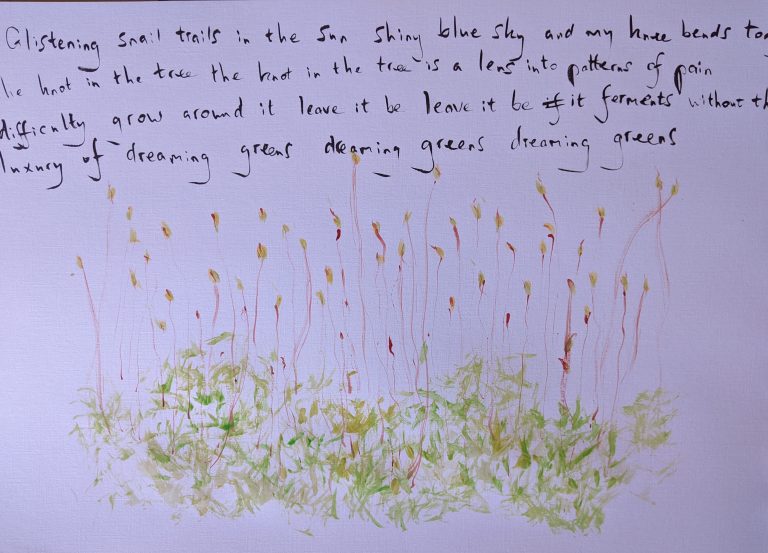 Glistening snail trails in the sun shiny blue sky and my knee bends
knot in the tree the knot in the tree is a lens into patterns of pain
difficulty grow around it leave it be leave it be it ferments without
luxury of dreaming greens dreaming greens dreaming greens